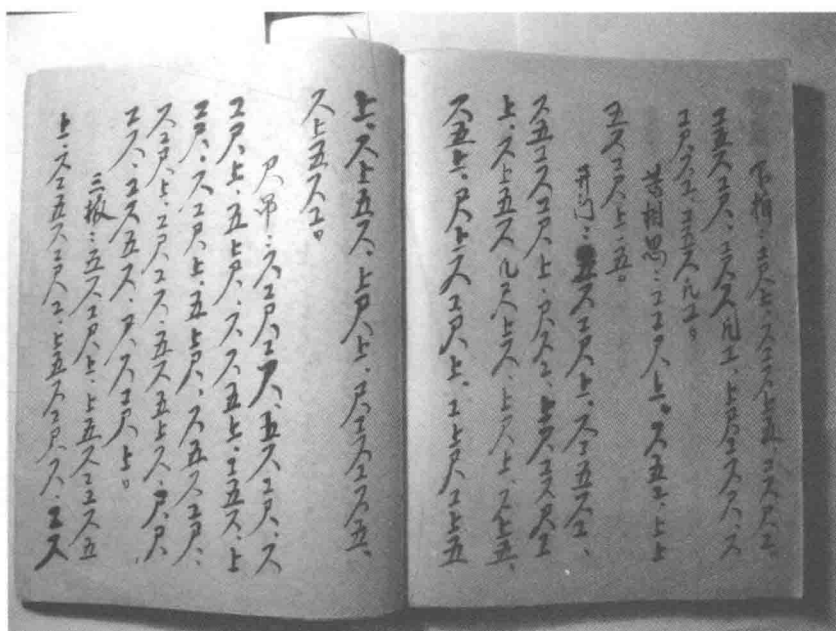 工尺上、六工六上五、工六尺工、
工五六工尺、工六六凡工、上尺工六尺、六
工尺六工、工五六凡工。
苦相思：工工尺上。六五工、上上
五六工尺上、五。
开门：五六工尺上、六工五六工、
六五工六工尺上、尺六工、上六工六尺工
上、六上五六凡工六上六、上尺上、六上五、
六五上、尺上六工尺上、工上尺工上五
上、六上五六、上尺上、尺工六工六五、
六上五六工。
尺吊：六工尺工尺、五六工尺、六
工尺上、五上尺、六六五上、工五六、上
工尺、六工尺上、五上尺、六五六工尺、
六工尺上、工尺工六、五六五上六、尺、尺
工六、工六五六、尺、六六工尺上。
三板：五六工尺上、上五六工工六五
上、六工五六工尺工、上五六工尺六、工六